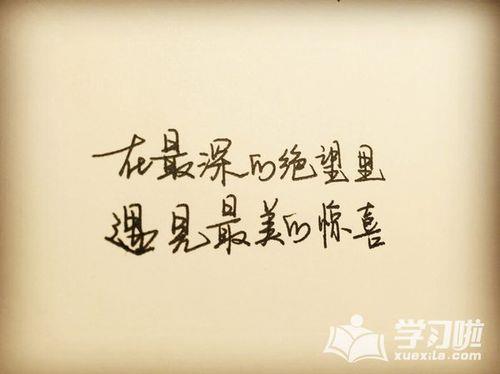 在最深的绝望里
遇见最美的惊喜
学习啦
xuexila.com